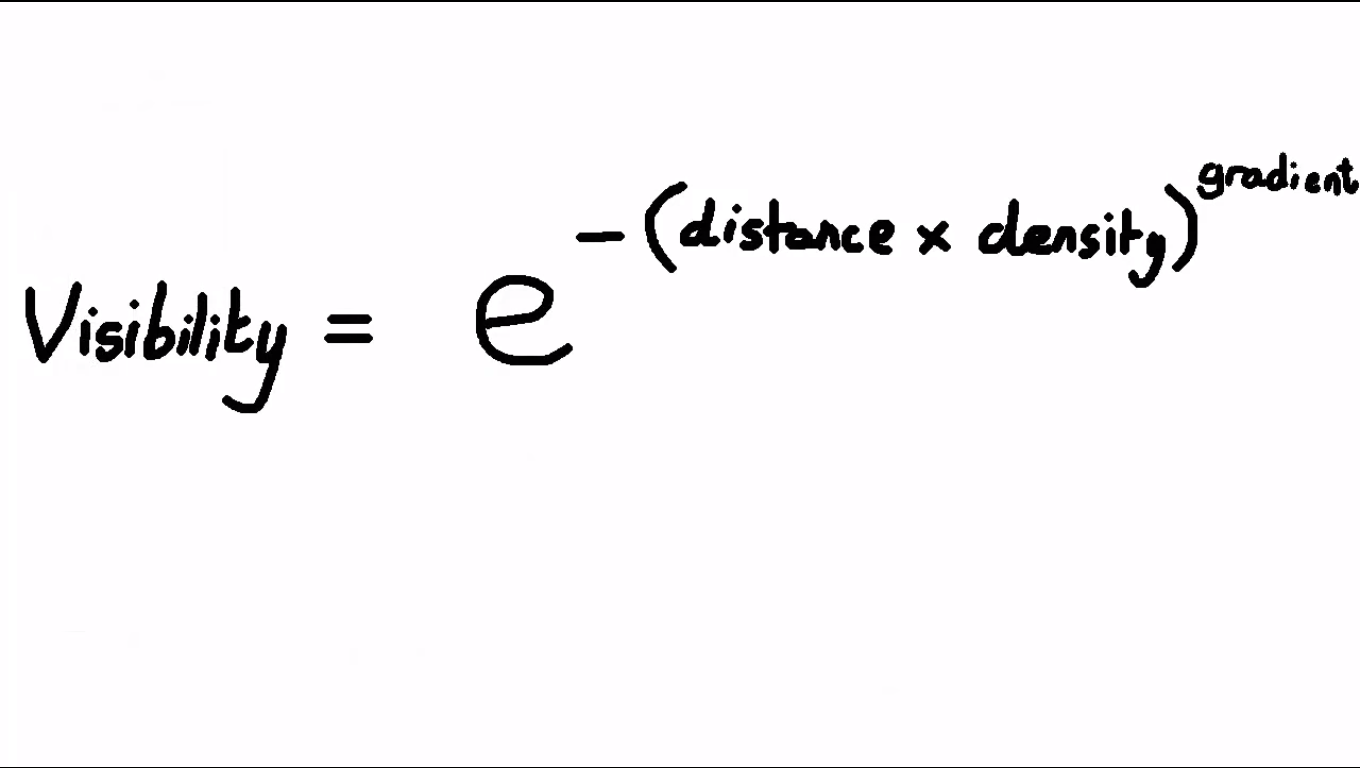 Visibility = e^-(distance x density)^gradient